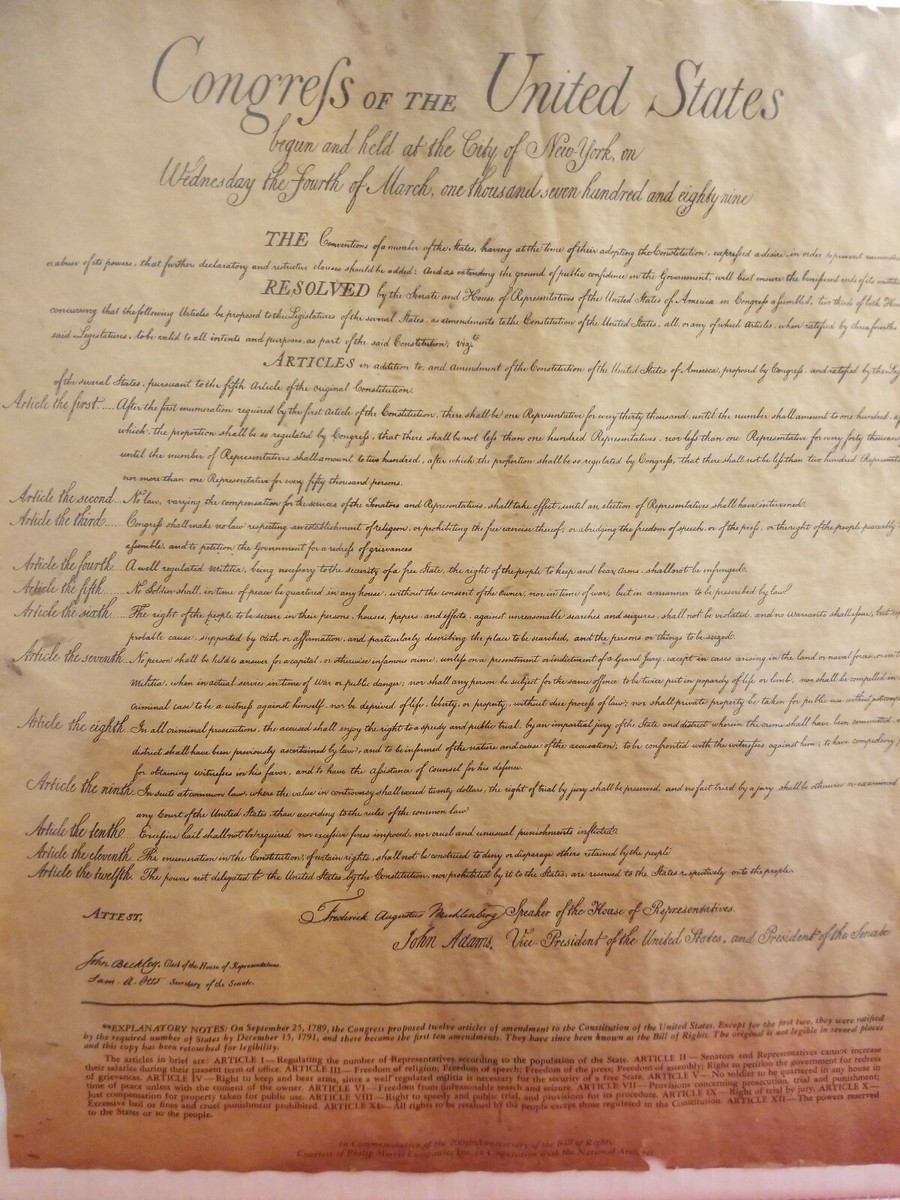 Congreſs OF THE United States
begun and held at the City of New-York, on
Wednesday the Fourth of March, one thousand seven hundred and eighty nine
THE Conventions of a number of the States, having at the time of their adopting the Constitution, expreſsed a desire, in order to prevent
or abuse of its powers, that further declaratory and restrictive clauses should be added: And as extending the ground of public confidence in the Government, will best ensure the beneficent ends of its
RESOLVED by the Senate and House of Representatives of the United States of America in Congreſs aſsembled, two thirds of both
concurring that the following Articles be proposed to the Legislatures of the several States, as amendments to the Constitution of the United States, all, or any of which Articles, when ratified by three fourths
said Legislatures, to be valid to all intents and purposes, as part of the said Constitution, vizt
ARTICLES in addition to, and amendment of the Constitution of the United States of America, proposed by Congreſs, and ratified by the
of the several States, pursuant to the fifth Article of the original Constitution.
Article the first.... After the first enumeration required by the first Article of the Constitution, there shall be one Representative for every thirty thousand, until the number shall amount to one hundred,
which, the proportion shall be so regulated by Congreſs, that there shall be not leſs than one hundred Representatives, nor leſs than one Representative for every forty thousand
until the number of Representatives shall amount to two hundred, after which the proportion shall be so regulated by Congreſs, that there shall not be leſs than two hundred
nor more than one Representative for every fifty thousand persons.
Article the second... No law, varying the compensation for the services of the Senators and Representatives, shall take effect, until an election of Representatives shall have intervened.
Article the third..... Congreſs shall make no law respecting an establishment of religion, or prohibiting the free exercise thereof, or abridging the freedom of speech, or of the preſs, or the right of the people peaceably
aſsemble, and to petition the Government for a redreſs of grievances
Article the fourth. A well regulated Militia, being neceſsary to the security of a free State, the right of the people to keep and bear Arms, shall not be infringed.
Article the fifth..... No Soldier shall, in time of peace be quartered in any house, without the consent of the Owner, nor in time of war, but in a manner to be prescribed by law.
Article the sixth..... The right of the people to be secure in their persons, houses, papers, and effects, against unreasonable searches and seizures, shall not be violated, and no Warrants shall iſsue, but
probable cause, supported by Oath or affirmation, and particularly describing the place to be searched, and the persons or things to be seized.
Article the seventh.. No person shall be held to answer for a capital, or otherwise infamous crime, unleſs on a presentment or indictment of a Grand Jury, except in cases arising in the land or naval forces,
Militia, when in actual service in time of War or public danger; nor shall any person be subject for the same offence to be twice put in jeopardy of life or limb, nor shall be compelled in
criminal case to be a witneſs against himself, nor be deprived of life, liberty, or property, without due proceſs of law; nor shall private property be taken for public use without just
Article the eighth. In all criminal prosecutions, the accused shall enjoy the right to a speedy and public trial, by an impartial jury of the State and district wherein the crime shall have been committed,
district shall have been previously ascertained by law, and to be informed of the nature and cause of the accusation; to be confronted with the witneſses against him; to have compulsory
for obtaining witneſses in his favor, and to have the Aſsistance of Counsel for his defence.
Article the ninth. In suits at common law, where the value in controversy shall exceed twenty dollars, the right of trial by jury shall be preserved, and no fact tried by a jury shall be otherwise re-examined
any Court of the United States, than according to the rules of the common law.
Article the tenth.. Exceſsive bail shall not be required nor exceſsive fines imposed, nor cruel and unusual punishments inflicted.
Article the eleventh. The enumeration in the Constitution, of certain rights, shall not be construed to deny or disparage others retained by the people
Article the twelfth. The powers not delegated to the United States by the Constitution, nor prohibited by it to the States, are reserved to the States respectively or to the people.
ATTEST,
Frederick Augustus Muhlenberg Speaker of the House of Representatives.
John Adams, Vice President of the United States, and President of the Senate
John Beckley, Clerk of the House of Representatives.
Sam. A. Otis Secretary of the Senate.
**EXPLANATORY NOTES: On September 25, 1789, the Congress proposed twelve articles of amendment to the Constitution of the United States. Except for the first two, they were ratified
by the required number of States by December 15, 1791, and these became the first ten amendments. They have since been known as the Bill of Rights. The original is not legible in several places
and this copy has been retouched for legibility.
The articles in brief are: ARTICLE I—Regulating the number of Representatives according to the population of the State. ARTICLE II—Senators and Representatives cannot increase
their salaries during their present term of office. ARTICLE III—Freedom of religion; Freedom of speech; Freedom of the press; Freedom of assembly; Right to petition the government for redress
of grievances. ARTICLE IV—Right to keep and bear arms, since a well regulated militia is necessary for the security of a free State. ARTICLE V—No soldier to be quartered in any house in
time of peace unless with the consent of the owner. ARTICLE VI—Freedom from unreasonable search and seizure. ARTICLE VII—Provisions concerning prosecution, trial and punishment;
just compensation for property taken for public use. ARTICLE VIII—Right to speedy and public trial, and provisions for its procedure. ARTICLE IX—Right of trial by jury. ARTICLE X—
Excessive bail or fines and cruel punishment prohibited. ARTICLE XI—All rights to be retained by the people except those regulated in the Constitution. ARTICLE XII—The powers reserved
to the States or to the people.
In Commemoration of the 200th Anniversary of the Bill of Rights
Courtesy of Philip Morris Companies Inc. in Cooperation with the National Archives